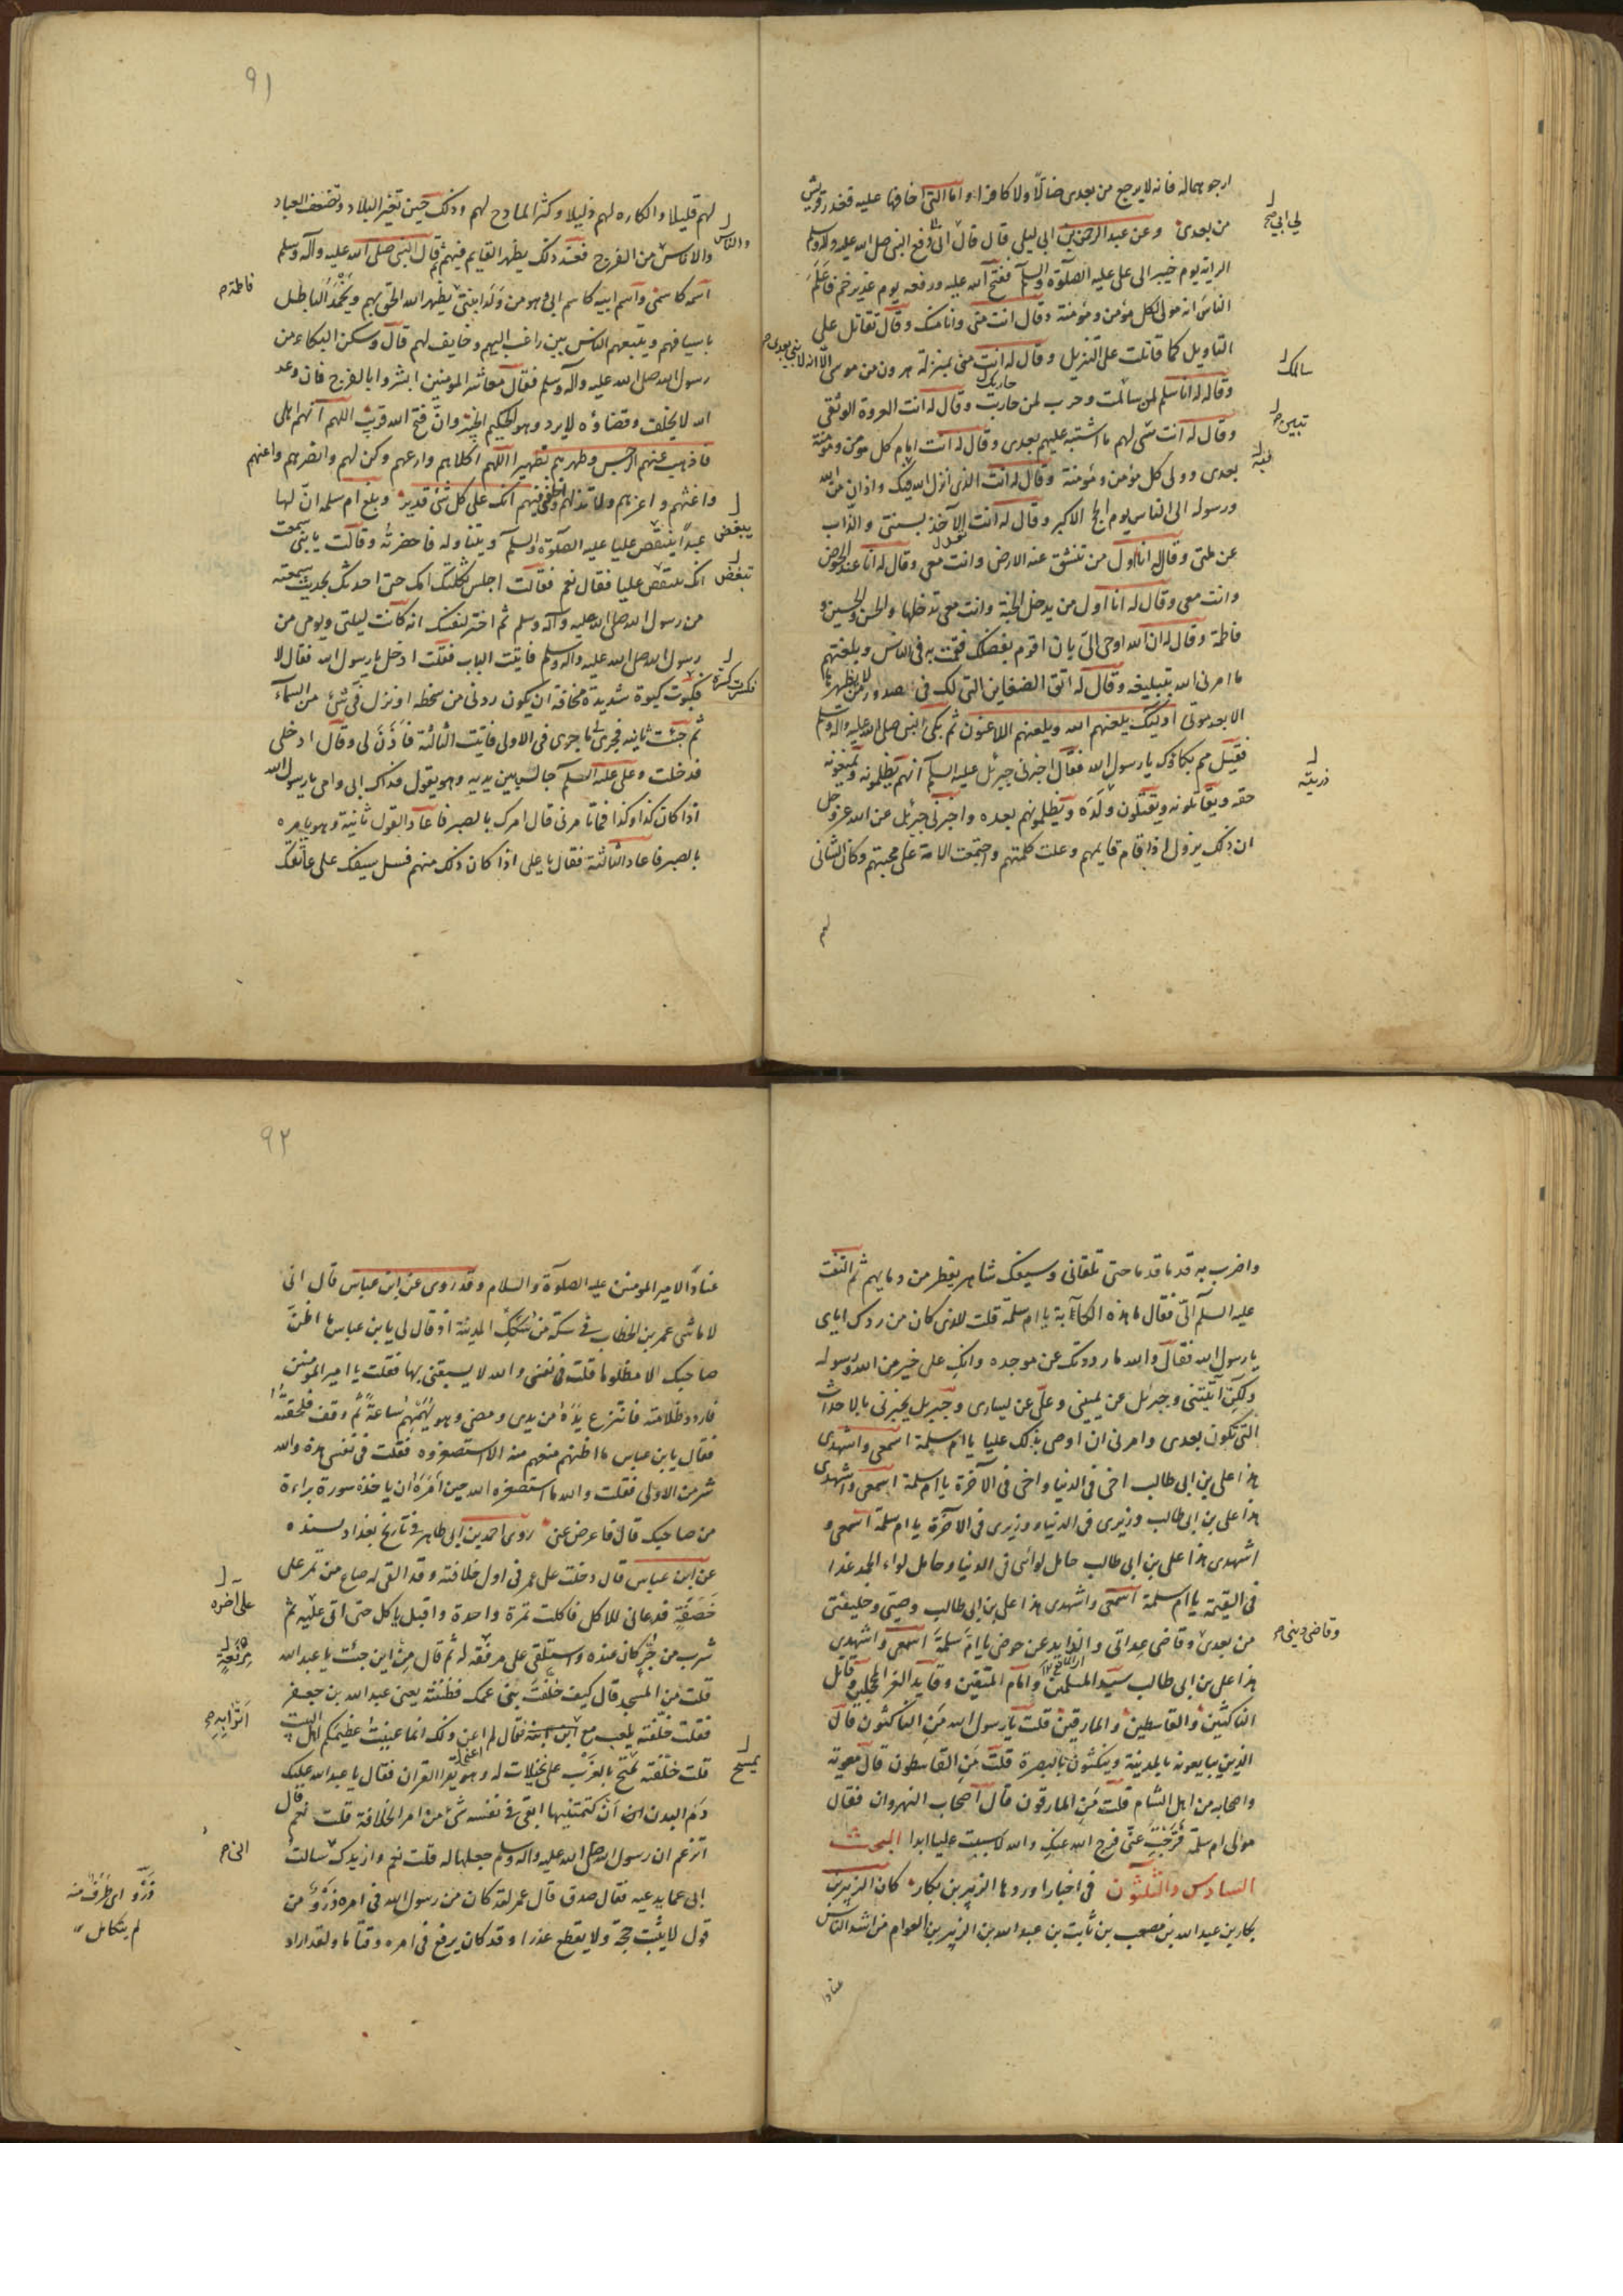 ارجو هماله فانه لا يرجع من بعدى ضالّا ولا كافرا واما التى اخافها عليه فغدر قريش
من بعدى وعن عبد الرحمن بن ابى ليلى قال قال ابى دفع النبى صلى الله عليه وآله وسلم
الراية يوم خيبر الى على عليه الصلوة والسلم ففتح الله عليه ورفعه يوم غدير خم فاعلم
الناس انه مولى كل مؤمن ومؤمنة وقال انت منى وانا منك وقال تقاتل على
التاويل كما قاتلت على التنزيل وقال له انت منى بمنزلة هرون من موسى الا انه لا نبى بعدى
وقال له انا سلم لمن سالمت وحرب لمن حاربت وقال له انت العروة الوثقى
وقال له انت تبين لهم ما اشتبه عليهم بعدى وقال له انت امام كل مؤمن ومؤمنة
بعدى وولى كل مؤمن ومؤمنة وقال له انت الذى انزل الله فيك واذان من الله
ورسوله الى الناس يوم الحج الاكبر وقال له انت الآخذ بسنتى والذاب
عن ملتى وقال له انا اول من تنشق عنه الارض وانت معى وقال له انا عند الحوض
وانت معى وقال له انا اول من يدخل الجنة وانت معى تدخلها والحسن والحسين و
فاطمة وقال له ان الله اوحى الىّ بان اقوم بفضلك فقمت به فى الناس وبلغتهم
ما امرنى الله بتبليغه وقال له اتق الضغاين التى لك فى صدور من لا يظهرها
الا بعد موتى اوليك يلعنهم الله ويلعنهم اللاعنون ثم بكى النبى صلى الله عليه وآله وسلم
فقيل مم بكاؤك يا رسول الله فقال اخبرنى جبرئل عليه السلم انهم يظلمونه ويمنعونه
حقه ويقاتلونه ويقتلون ولده ويظلمونهم بعده واخبرنى جبرئل عن الله عز وجل
ان ذلك يزول اذا قام قايمهم وعلت كلمتهم واجتمعت الامة على محبتهم وكان الشانى
سالمك
ذريته
لهم
٩١
لهم قليلا والكاره لهم ذليلا وكثر المادح لهم وذلك حين تغير البلاد وتضعف العباد
والاياس من الفرج فعند ذلك يظهر القايم فيهم قال النبى صلى الله عليه وآله وسلم
اسمه كاسمى واسم ابيه كاسم ابى وهو من ولد ابنتى يظهر الله الحق بهم ويخمد الباطل
باسيافهم ويتبعهم الناس بين راغب اليهم وخايف لهم قال وسكن البكاء من
رسول الله صلى الله عليه وآله وسلم فقال معاشر المومنين ابشروا بالفرج فان وعد
الله لا يخلف وقضاؤه لا يرد وهو الحكيم الخبير وانّ فتح الله قريب اللهم انهم اهلى
فاذهب عنهم الرجس وطهرهم تطهيرا اللهم اكلاهم وارعهم وكن لهم وانصرهم واعنهم
واعزهم ولا تذلهم واخلفنى فيهم انك على كل شئ قدير وبلغ ام سلمه انّ لها
عبدا ينتقص عليا عليه الصلوة والسلم ويتناوله فاحضرته وقالت يا بنى سمعت
انك تنتقص عليا فقال نعم فقالت اجلس ثكلتك امك حتى احدثك بحديث سمعته
من رسول الله صلى الله عليه وآله وسلم ثم اختر لنفسك انه كانت ليلتى ويومى من
رسول الله صلى الله عليه وآله وسلم فاتيت الباب فقلت ادخل يا رسول الله فقال لا
فكبوت كبوة شديدة مخافة ان يكون ردنى من سخطه او نزل فىّ شئ من السمآء
ثم جئت ثانية فجرى ما جرى فى الاولى فاتيت الثالثة فاذن لى وقال ادخلى
فدخلت وعلى عليه السلم جالس بين يديه وهو يقول فداك ابى وامى يا رسول الله
اذا كان كذا وكذا فما تامرنى قال امرك بالصبر فاعاد القول ثانية وهو يامره
بالصبر فاعاد الثالثة فقال يا على اذا كان ذلك منهم فسل سيفك على عاتقك
والناس
فاطمة
يبغض
تبغض
واضرب به قدما قدما حتى تلقانى وسيفك شاهر يقطر من دمايهم ثم التفت
عليه السلم الىّ فقال ما هذه الكآبة يا ام سلمة قلت للذى كان من ردك اياى
يا رسول الله فقال والله ما رددتك عن موجده وانك على خير من الله ورسوله
ولكن اتيتنى وجبرئل عن يمينى وعلىّ عن يسارى وجبريل يخبرنى بالاحداث
التى تكون بعدى وامرنى ان اوصى بذلك عليا يا ام سلمة اسمعى واشهدى
هذا على بن ابى طالب اخى فى الدنيا واخى فى الآخرة يا ام سلمة اسمعى واشهدى
هذا على بن ابى طالب وزيرى فى الدنيا ووزيرى فى الآخرة يا ام سلمة اسمعى و
اشهدى هذا على بن ابى طالب حامل لوائى فى الدنيا وحامل لواء الحمد غدا
فى القيمة يا ام سلمة اسمعى واشهدى هذا على بن ابى طالب وصيى وخليفتى
من بعدى وقاضى عداتى والذايد عن حوضى يا ام سلمة اسمعى واشهدى
هذا على بن ابى طالب سيد المسلمين وامام المتقين وقايد الغر المحجلين وقاتل
الناكثين والقاسطين والمارقين قلت يا رسول الله من الناكثون قال
الذين يبايعونه بالمدينة وينكثون بالبصرة قلت من القاسطون قال معوية
واصحابه من اهل الشام قلت من المارقون قال اصحاب النهروان فقال
مولى ام سلمة فرجت عنى فرج الله عنك والله لا سببت عليا ابدا البحث
السادس والثلثون فى اخبار اوردها الزبير بن بكار كان الزبير بن
بكار بن عبد الله بن مصعب بن ثابت بن عبد الله بن الزبير بن العوام من اشد الناس
وقاضى دينى
عنادا
٩٢
عنادا لامير المومنين عليه الصلوة والسلام وقد روى عن ابن عباس قال انى
لاماشى عمر بن الخطاب فى سكة من سكك المدينة اذ قال لى يا بن عباس ما اظن
صاحبك الا مظلوما قلت فى نفسى والله لا يسبقنى بها فقلت يا امير المومنين
فاردد ظلامته فانتزع يده من يدى ومضى وهو يهمهم ساعة ثم وقف فلحقته
فقال يا بن عباس ما اظنهم منعهم منه الا استصغروه فقلت فى نفسى هذه والله
شر من الاولى فقلت والله ما استصغره الله حين امره ان ياخذ سورة براءة
من صاحبك قال فاعرض عنى روى احمد بن ابى طاهر فى تاريخ بغداد بسنده
عن ابن عباس قال دخلت على عمر فى اول خلافته وقد القى له صاع من تمر على
خصفة فدعانى للاكل فاكلت تمرة واحدة واقبل ياكل حتى اتى عليه ثم
شرب من جر كان عنده واستلقى على مرفقه له ثم قال من اين جئت يا عبد الله
قلت من المسجد قال كيف خلفت بنى عمك فظننته يعنى عبد الله بن جعفر
فقلت خلفته يلعب مع فقال لم اعن ذلك انما عنيت عظيمكم اهل البيت
قلت خلفته يمتح بالغرب على نخيلات له وهو يقرا القران فقال يا عبد الله عليك
دم البدن ان كتمتنيها ابقى فى نفسه شئ من امر الخلافة قلت نعم قال
اتزعم ان رسول الله صلى الله عليه وآله وسلم جعلها له قلت نعم وازيدك سالت
ابى عما يدعيه فقال صدق قال عمر لقد كان من رسول الله فى امره ذرو من
قول لا يثبت حجة ولا يقطع عذرا وقد كان يرفع فى امره وقتا ما ولقد اراد
على آخره
اترابه
ذرو اى طرف منه
لم يتكامل